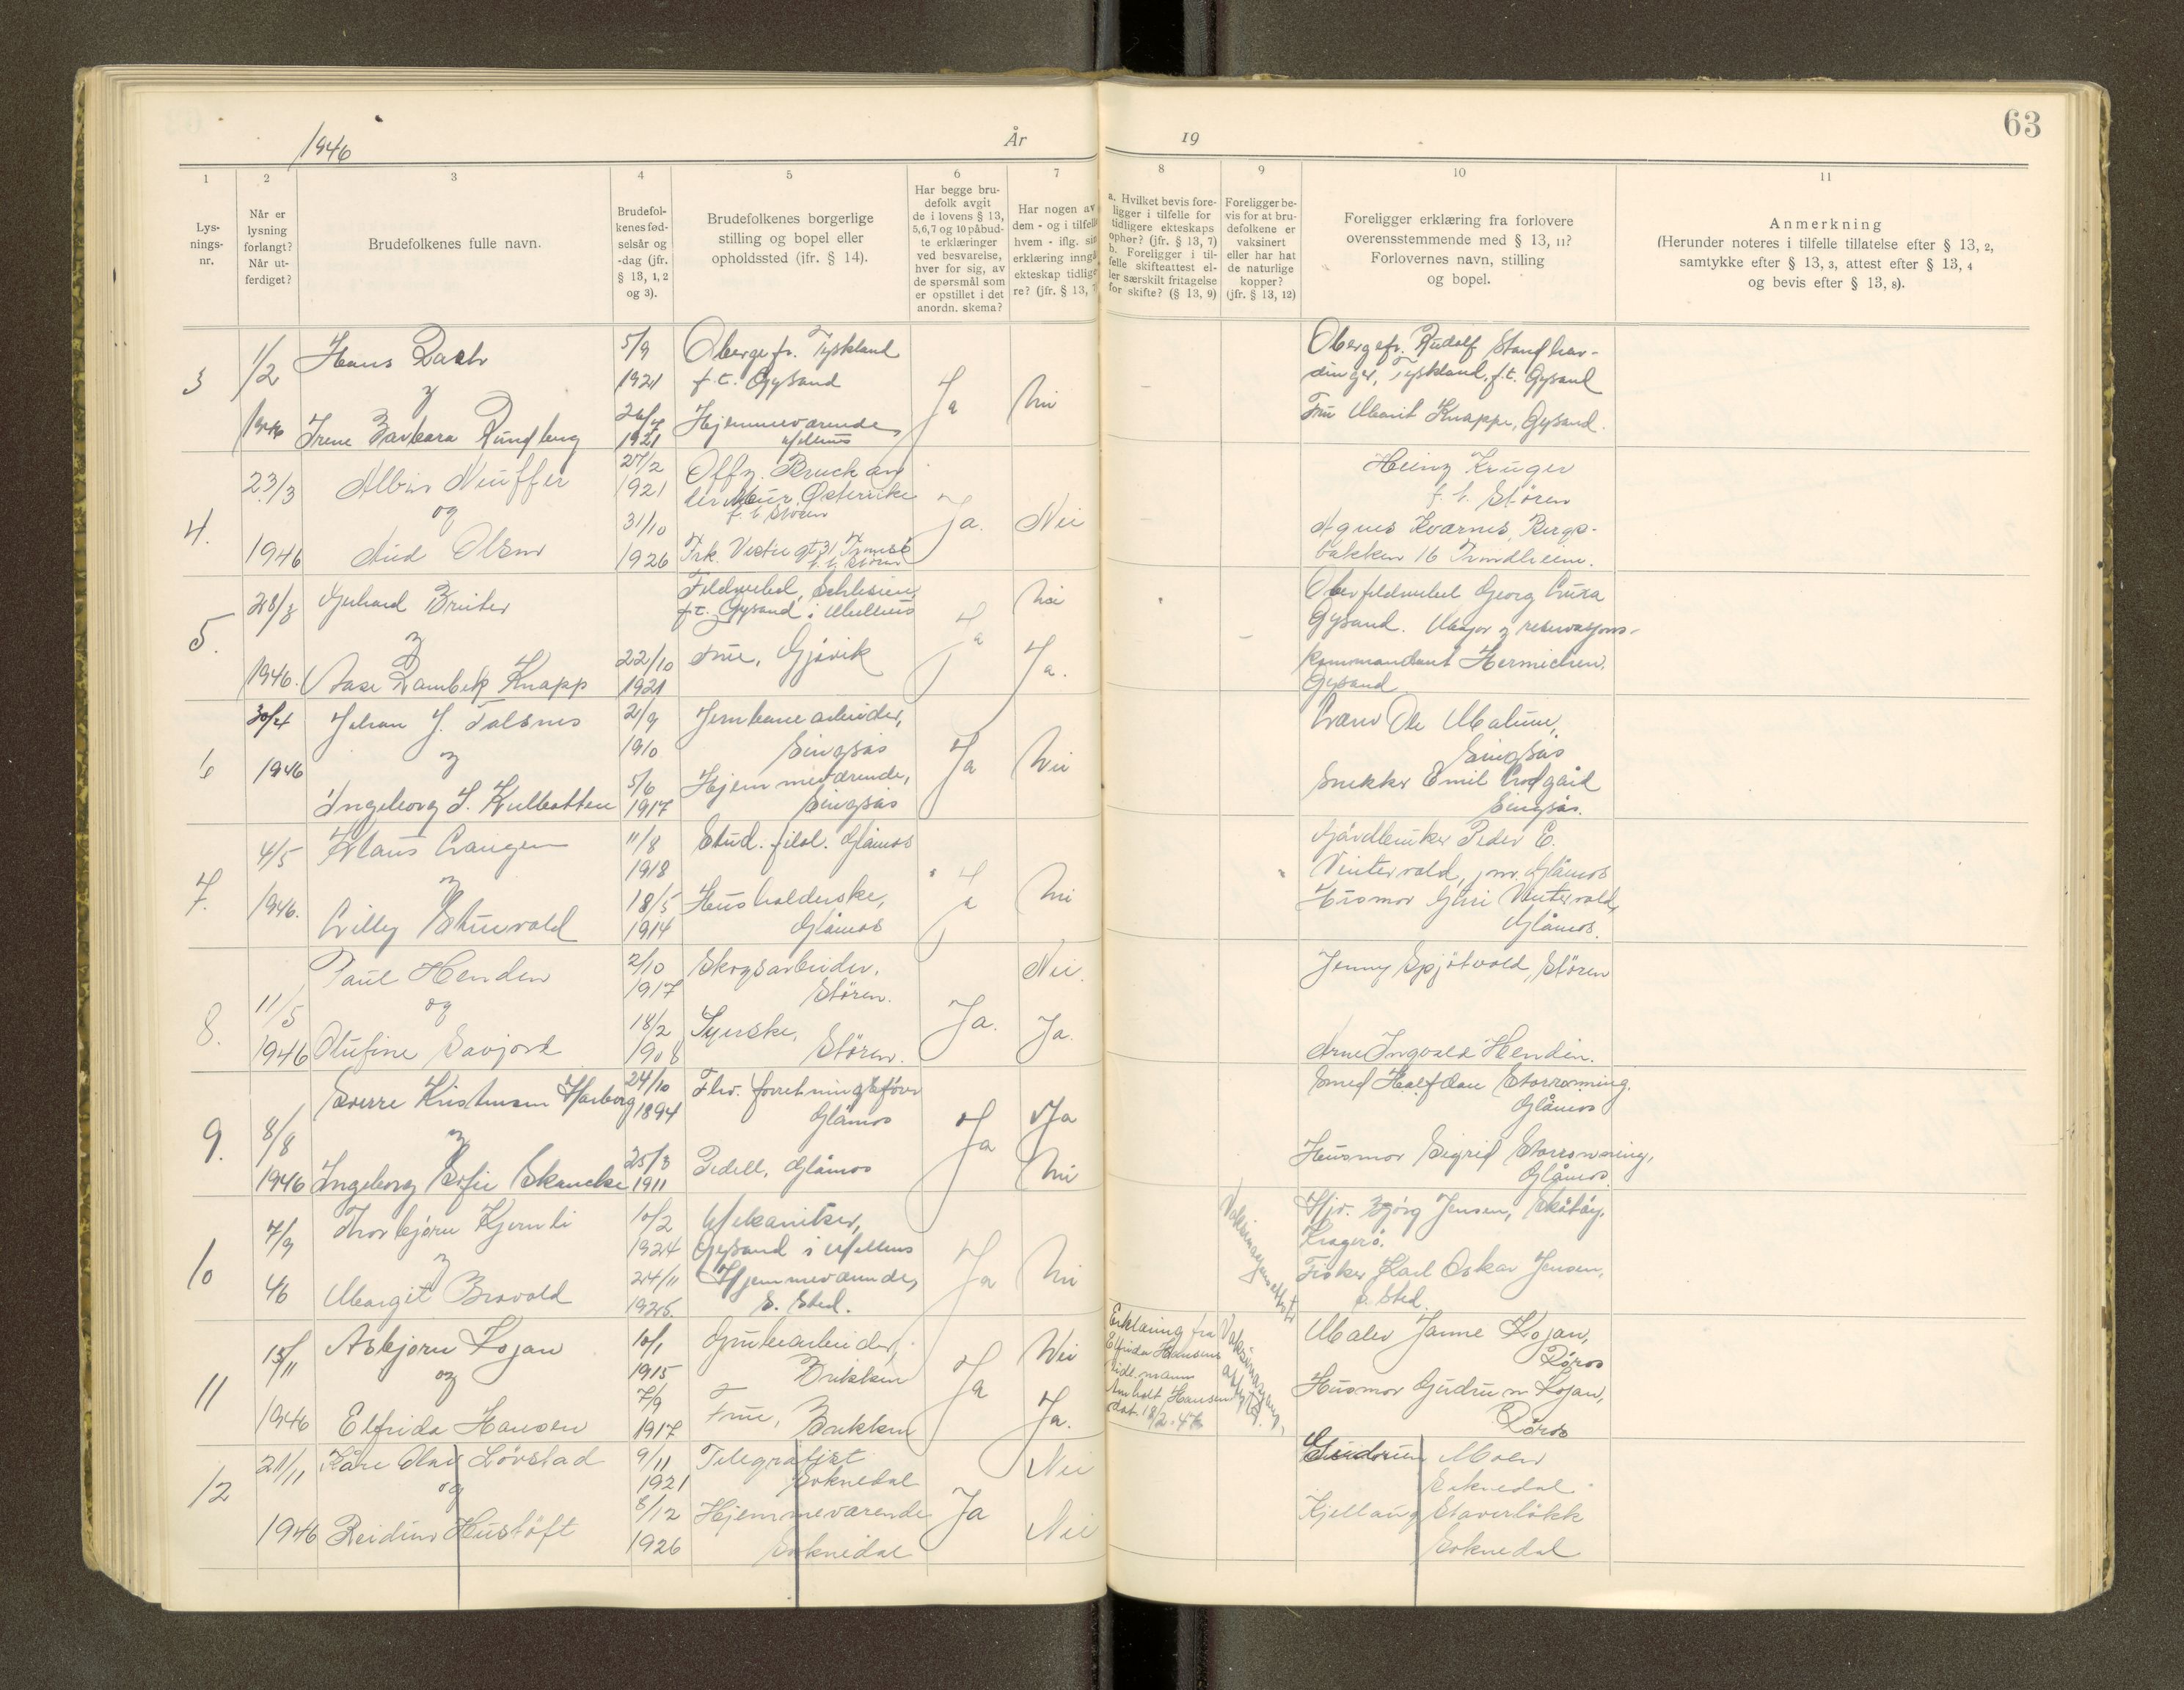 63
1946
År
19
1
2
3
4
5
6
7
8
9
10
11
Lys-
nings-
nr.
Når er
lysning
forlangt?
Når ut-
ferdiget?
Brudefolkenes fulle navn.
Brudefol-
kenes fød-
selsår og
-dag (jfr.
§ 13, 1, 2
og 3).
Brudefolkenes borgerlige
stilling og bopel eller
opholdssted (jfr. § 14).
Har begge bru-
defolk avgit
de i lovens § 13,
5,6,7 og 10 påbud-
te erklæringer
ved besvarelse,
hver for sig, av
de spørsmål som
er opstillet i det
anordn. skema?
Har nogen av
dem - og i tilfelle
hvem - iflg. sin
erklæring inngå
ekteskap tidlige-
re? (jfr. § 13, 7
a. Hvilket bevis fore-
ligger i tilfelle for
tidligere ekteskaps
ophør? (jfr. § 13, 7)
b. Foreligger i til-
felle skifteattest el-
ler særskilt fritagelse
for skifte? (§ 13, 9)
Foreligger be-
vis for at bru-
defolkene er
vaksinert
eller har hat
de naturlige
kopper?
(jfr. § 13, 12)
Foreligger erklæring fra forlovere
overensstemmende med § 13, 11?
Forlovernes navn, stilling
og bopel.
Anmerkning
(Herunder noteres i tilfelle tillatelse efter § 13, 2,
samtykke efter § 13, 3, attest efter § 13, 4
og bevis efter § 13, 8).
3
1/2
1946
Hans
og
Irene Barbara Rundberg
5/9
1921
26/7
1921
Obergefr. Tyskland
f.t. Øysand
Hjemmeværende,
Melhus
Ja
Nei
Obergefr. Rudolf
Tyskland, f.t. Øysand
Fru Marit Knapp, Øysand.
4.
23/3
1946
Albin Neuffer
og
Aud Olsen
27/2
1921
31/10
1926
Offz. Bruck an
der Mur. Østerrike
f. t. Støren
Frk. Vestregt 31 Tromsø
f. t. Støren
Ja.
Nei
Heinz Kruger
f. t. Støren
Agnes Kvarnes, Bergs-
bakken 16 Trondheim.
5.
28/3
1946.
Gerhard
og
Aase Rambek Knapp
22/10
1921
Feldwebel, Schlesien,
f.t. Øysand i Melhus
Frue, Gjøvik
Ja
Nei
Ja.
Oberfeldwebel Georg
Øysand. Major og reservasjons-
kommandant Hermichen.
Øysand
6
30/4
1946
Johan J. Talsnes
og
Ingeborg S. Kulbotten
2/9
1910
5/6
1917
Jernbanearbeider,
Singsås
Hjemmeværende,
Singsås
Ja
Nei
Ole Malum,
Singsås
Snekker Emil
Singsås.
7.
4/5
1946.
Klaus Langen
og
Lilly
11/8
1918
18/5
1914
Stud. filol. Glåmos
Husholderske,
Glåmos
Ja
Nei
Gårdbruker Peder E.
Vintervold, Glåmos
Husmor Guri Vintervold,
Glåmos.
8.
11/5
1946
Paul Henden
og
Olufine Savjord
2/10
1917
18/2
1908
Skogsarbeider.
Støren.
Syerske,
Støren.
Ja.
Nei.
Ja.
Jenny Spjøtvold, Støren
Arne Ingvald Henden.
9.
8/8
1946
Sverre Kristensen Harborg
og
Ingeborg Sofie Skancke
24/10
1894
25/3
1911
Fhv. forretningsfører
Glåmos
Pedell, Glåmos
Ja
Ja
Nei
Smed Halfdan Storrønning.
Glåmos
Husmor Sigrid Storrønning,
Glåmos.
10
7/9
46
Thorbjørn Kjernli
og
Margit Brovold
10/2
1924
24/11
1926
Mekaniker,
Øysand i Melhus
Hjemmeværende,
s. sted.
Ja
Nei
Vaksinasjonsattest
Hjv. Bjørg Jensen, Skåtøy,
Kragerø.
Fisker Karl Oskar Jensen,
s. sted.
11
15/11
1946
Asbjørn Kojan
og
Elfrida Hansen
10/1
1915
7/9
1917
Grubearbeider,
Brekken
Frue, Brekken
Ja
Nei
Ja.
Erklæring fra
Elfrida Hansens
tidl. mann
Hansen
dat. 18/2-46
Maler Janne Kojan,
Røros
Husmor Gudrun Kojan,
Røros
12
21/11
1946
Kåre Olav Løvstad
og
Reidun Hustøft
9/11
1921
8/12
1926
Telegrafist
Soknedal
Hjemmeværende
Soknedal
Ja
Nei
Nei
Gudrun Moen
Soknedal
Kjellaug Staverløkk
Soknedal